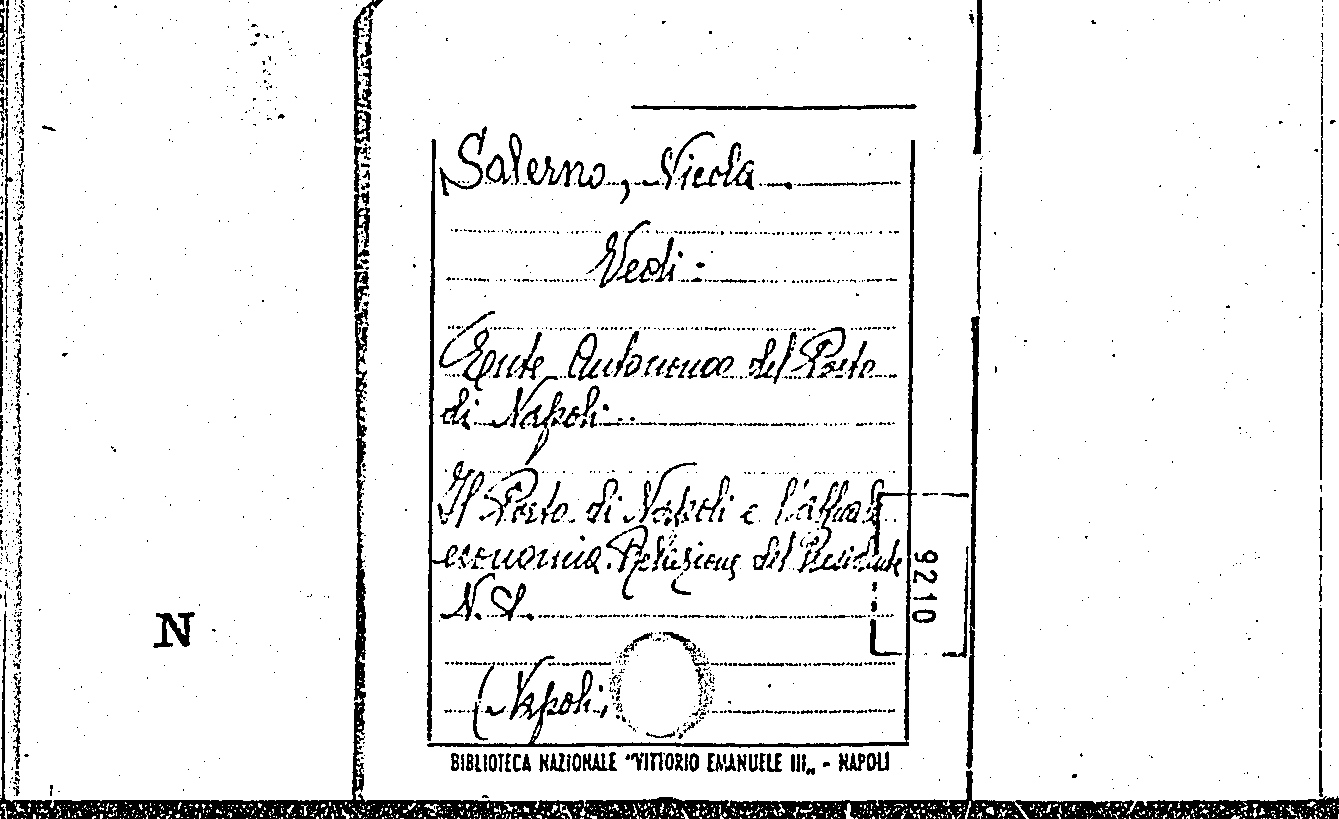 Salerno, Nicola.
Vedi:
Ente Autonomo del Porto
di Napoli.
Il Porto di Napoli e l'attuale
economia. Relazione del Presidente
N. S.
(Napoli,
9210
N
BIBLIOTECA NAZIONALE "VITTORIO EMANUELE III„ - NAPOLI